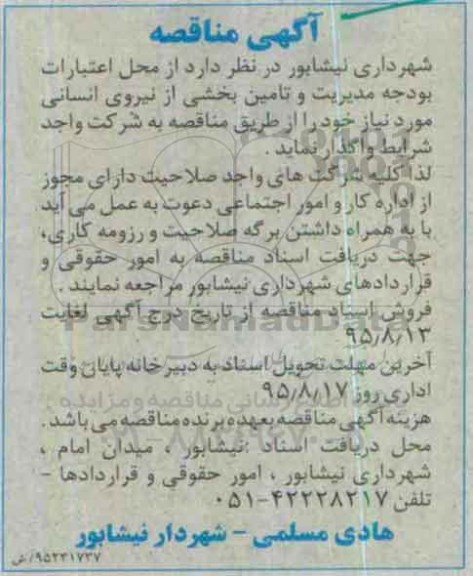 آگهی مناقصه
شهرداری نیشابور در نظر دارد از محل اعتبارات
بودجه مدیریت و تامین بخشی از نیروی انسانی
مورد نیاز خود را از طریق مناقصه به شرکت واجد
شرایط واگذار نماید .
لذا کلیه شرکت های واجد صلاحیت دارای مجوز
از اداره کار و امور اجتماعی دعوت به عمل می آید
با به همراه داشتن برگه صلاحیت و رزومه کاری،
جهت دریافت اسناد مناقصه به امور حقوقی و
قراردادهای شهرداری نیشابور مراجعه نمایند .
فروش اسناد مناقصه از تاریخ درج آگهی لغایت
۹۵/۸/۱۳
آخرین مهلت تحویل اسناد به دبیرخانه پایان وقت
اداری روز ۹۵/۸/۱۷
هزینه آگهی مناقصه بعهده برنده مناقصه می باشد .
محل دریافت اسناد :نیشابور ، میدان امام ،
شهرداری نیشابور ، امور حقوقی و قراردادها -
تلفن ۴۲۲۲۸۲۱۷-۰۵۱
هادی مسلمی - شهردار نیشابور
۹۵۲۳۱۷۳۷/ش
ParsNamadData